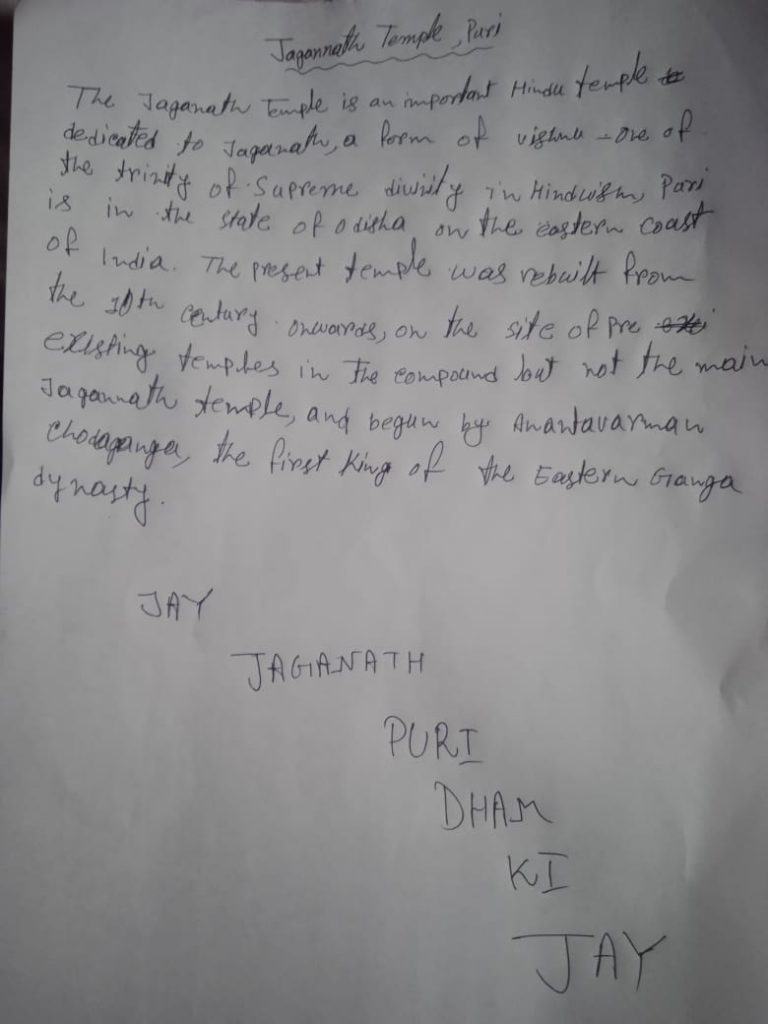 Jagannath Temple, Puri
The Jaganath Temple is an important Hindu temple
dedicated to Jaganath, a form of vishnu - one of
the trinity of Supreme divinity in Hinduism, Puri
is in the state of Odisha on the eastern coast
of India. The present temple was rebuilt from
the 10th century onwards, on the site of pre
existing temples in the compound but not the main
Jagannath temple, and begun by Anantavarman
Chodaganga, the first King of the Eastern Ganga
dynasty.
JAY
JAGANATH
PURI
DHAM
KI
JAY